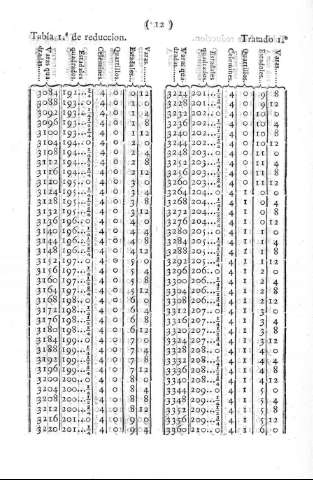 ( 12 )
Tabla 1.ª de reduccion. Tratado 1.º
Varas qua-dradas. Estadales quadrados. Celemines. Quartillos. Estadales. Varas.
3084 192...3/4 4 0 0 12
3088 193...0 4 0 1 0
3092 193...1/4 4 0 1 4
3096 193...1/2 4 0 1 8
3100 193...3/4 4 0 1 12
3104 194...0 4 0 2 0
3108 194...1/4 4 0 2 4
3112 194...1/2 4 0 2 8
3116 194...3/4 4 0 2 12
3120 195...0 4 0 3 0
3124 195...1/4 4 0 3 4
3128 195...1/2 4 0 3 8
3132 195...3/4 4 0 3 12
3136 196...0 4 0 4 0
3140 196...1/4 4 0 4 4
3144 196...1/2 4 0 4 8
3148 196...3/4 4 0 4 12
3152 197...0 4 0 5 0
3156 197...1/4 4 0 5 4
3160 197...1/2 4 0 5 8
3164 197...3/4 4 0 5 12
3168 198...0 4 0 6 0
3172 198...1/4 4 0 6 4
3176 198...1/2 4 0 6 8
3180 198...3/4 4 0 6 12
3184 199...0 4 0 7 0
3188 199...1/4 4 0 7 4
3192 199...1/2 4 0 7 8
3196 199...3/4 4 0 7 12
3200 200...0 4 0 8 0
3204 200...1/4 4 0 8 4
3208 200...1/2 4 0 8 8
3212 200...3/4 4 0 8 12
3216 201...0 4 0 9 0
3220 201...1/4 4 0 9
Varas qua-dradas. Estadales quadrados. Celemines. Quartillos. Estadales. Varas.
3224 201...1/2 4 0 9 8
3228 201...3/4 4 0 9 12
3232 202...0 4 0 10 0
3236 202...1/4 4 0 10 4
3240 202...1/2 4 0 10 8
3244 202...3/4 4 0 10 12
3248 203...0 4 0 11 0
3252 203...1/4 4 0 11 4
3256 203...1/2 4 0 11 8
3260 203...3/4 4 0 11 12
3264 204...0 4 1 0 0
3268 204...1/4 4 1 0 4
3272 204...1/2 4 1 0 8
3276 204...3/4 4 1 0 12
3280 205...0 4 1 1 0
3284 205...1/4 4 1 1 4
3288 205...1/2 4 1 1 8
3292 205...3/4 4 1 1 12
3296 206...0 4 1 2 0
3300 206...1/4 4 1 2 4
3304 206...1/2 4 1 2 8
3308 206...3/4 4 1 2 12
3312 207...0 4 1 3 0
3316 207...1/4 4 1 3 4
3320 207...1/2 4 1 3 8
3324 207...3/4 4 1 3 12
3328 208...0 4 1 4 0
3332 208...1/4 4 1 4 4
3336 208...1/2 4 1 4 8
3340 208...3/4 4 1 4 12
3344 209...0 4 1 5 0
3348 209...1/4 4 1 5 4
3352 209...1/2 4 1 5 8
3356 209...3/4 4 1 5 12
3360 210...0 4 1 6 0